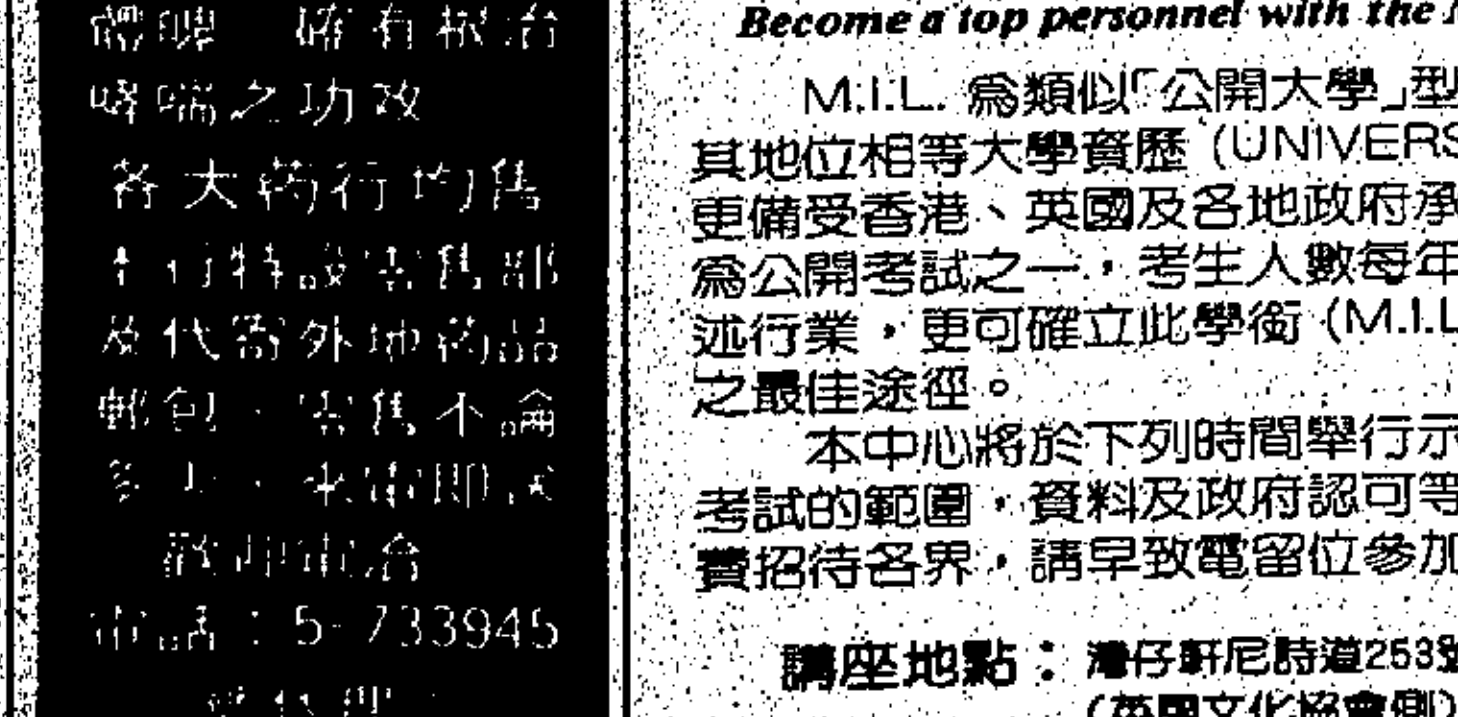 確有根治
哮喘之功效
各大葯行均售
行特設零售部
及代寄外地葯品
郵包、零售不論
多少、來電即送
歡迎電洽
電話：5-733945
Become a top personnel with the
M.I.L. 為類似「公開大學」型
其地位相等大學資歷 (UNIVERS
更備受香港、英國及各地政府承
為公開考試之一，考生人數每年
述行業，更可確立此學銜 (M.I.L
之最佳途徑。
本中心將於下列時間舉行示
考試的範圍，資料及政府認可等
費招待各界，請早致電留位參加
講座地點：灣仔軒尼詩道253號
(英國文化協會側)